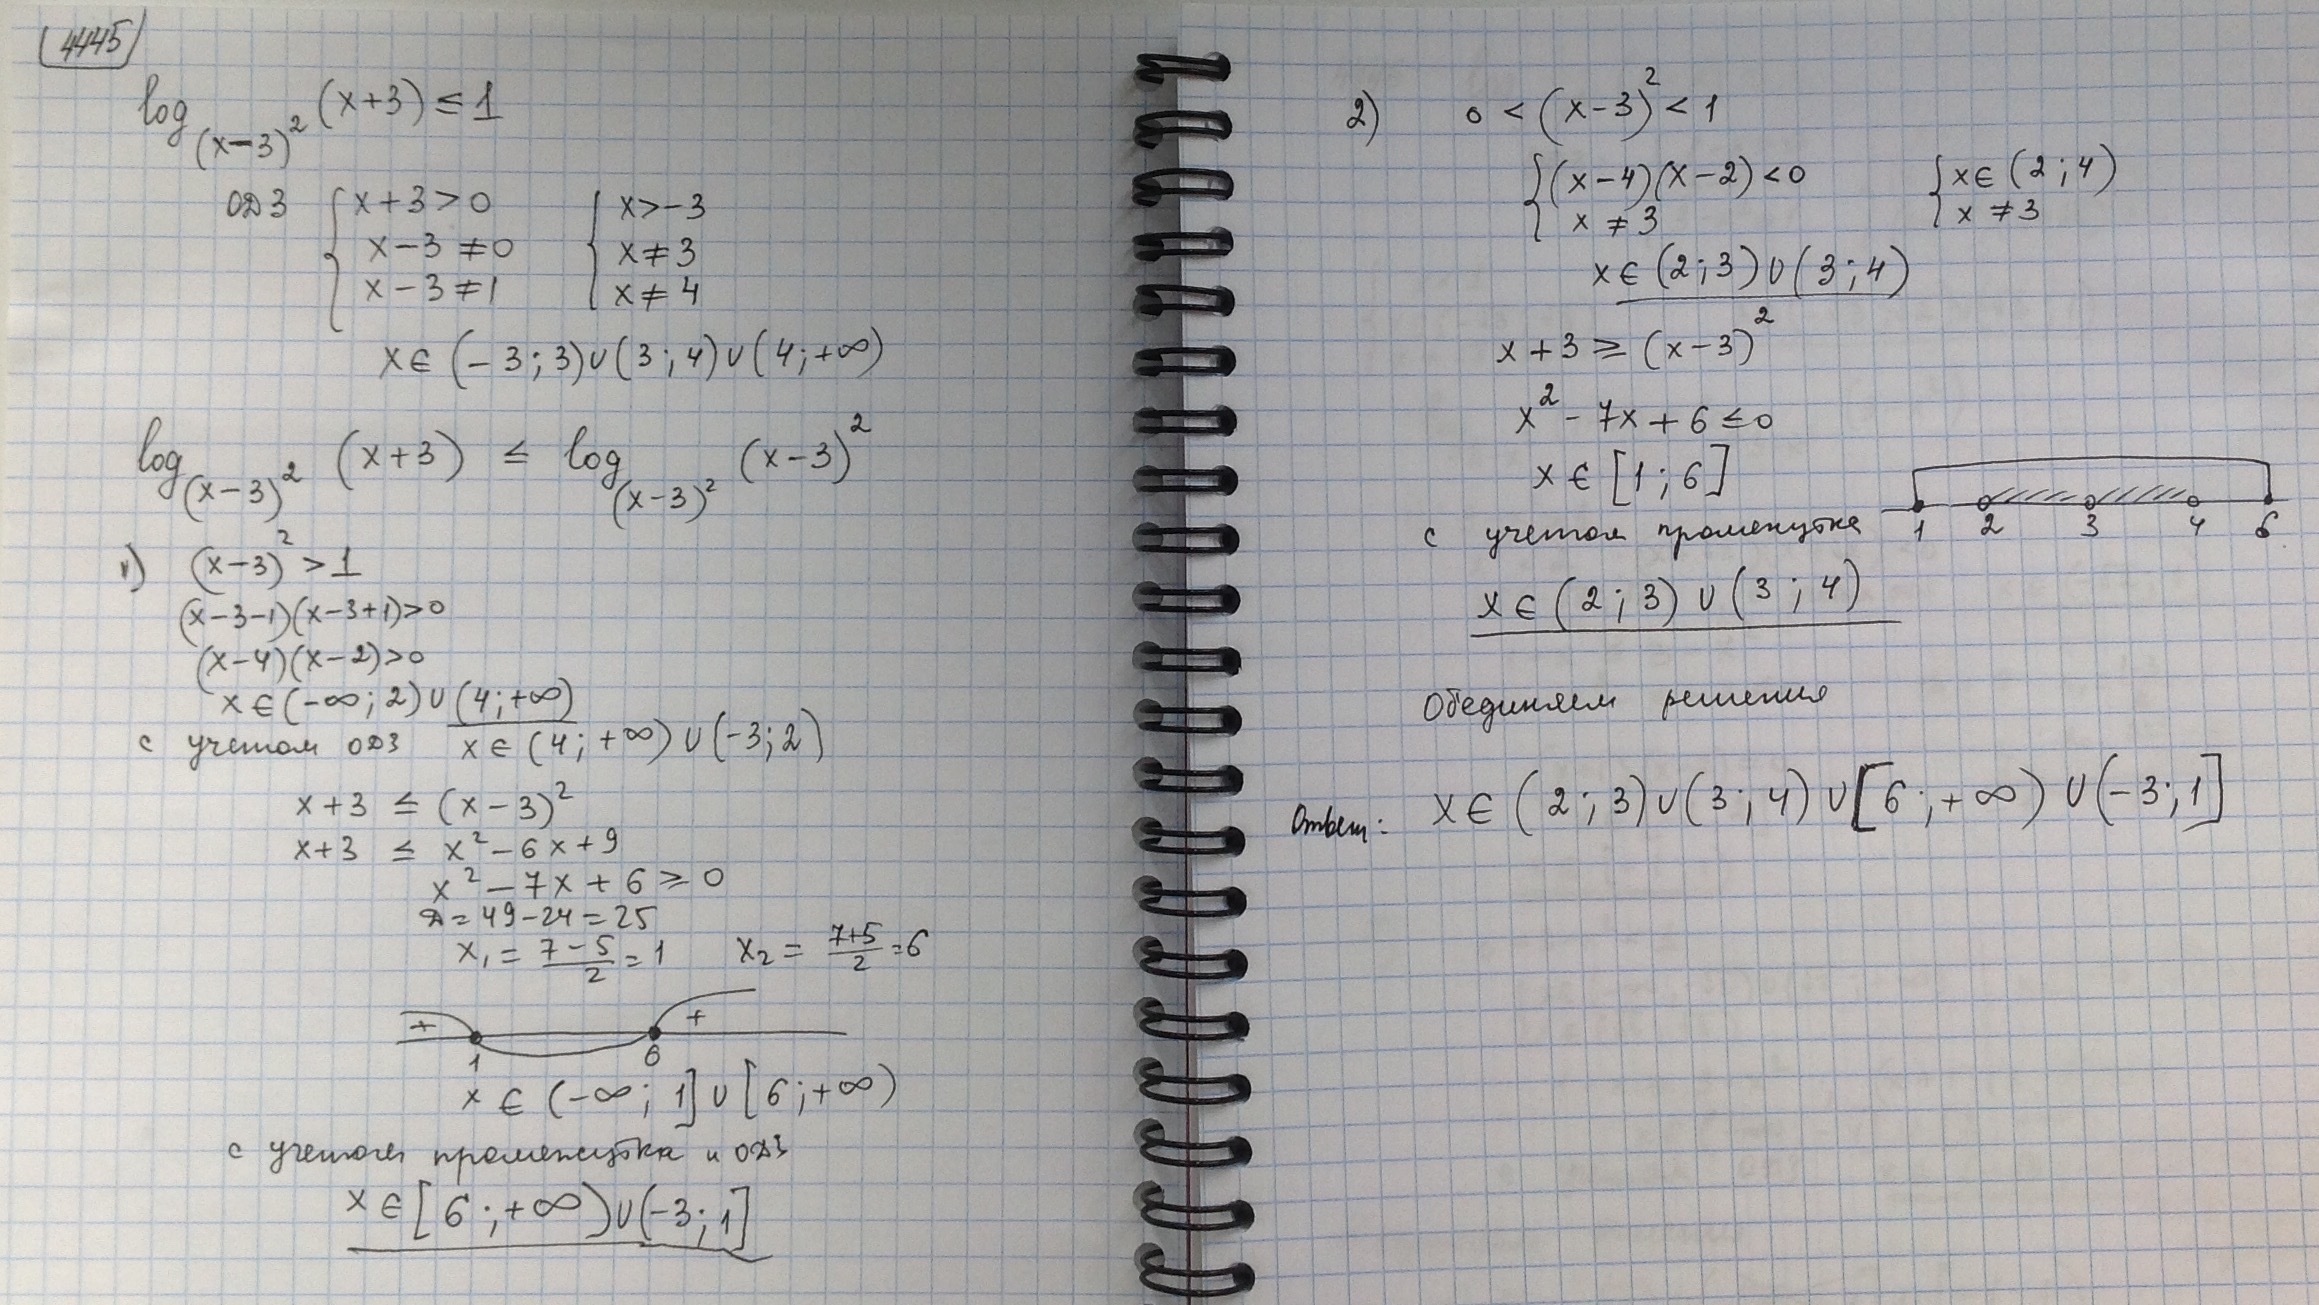 4445
log_{(x-3)^2} (x+3) ≤ 1
ОДЗ { x+3>0 { x>-3
x-3 ≠ 0 x ≠ 3
x-3 ≠ 1 x ≠ 4
x ∈ (-3; 3) ∪ (3; 4) ∪ (4; +∞)
log_{(x-3)^2} (x+3) ≤ log_{(x-3)^2} (x-3)^2
1) (x-3)^2 > 1
(x-3-1)(x-3+1)>0
(x-4)(x-2)>0
x ∈ (-∞; 2) ∪ (4; +∞)
с учетом ОДЗ x ∈ (4; +∞) ∪ (-3; 2)
x+3 ≤ (x-3)^2
x+3 ≤ x^2-6x+9
x^2-7x+6 ≥ 0
Д=49-24=25
x_1 = \frac{7-5}{2} = 1 x_2 = \frac{7+5}{2} = 6
+ +
1 6
x ∈ (-∞; 1] ∪ [6; +∞)
с учетом промежутка и ОДЗ
x ∈ [6; +∞) ∪ (-3; 1]
2) 0 < (x-3)^2 < 1
{ (x-4)(x-2)<0 { x ∈ (2; 4)
x ≠ 3 x ≠ 3
x ∈ (2; 3) ∪ (3; 4)
x+3 ≥ (x-3)^2
x^2-7x+6 ≤ 0
x ∈ [1; 6]
с учетом промежутка 1 2 3 4 6
x ∈ (2; 3) ∪ (3; 4)
Обединяем решения
Ответ: x ∈ (2; 3) ∪ (3; 4) ∪ [6; +∞) ∪ (-3; 1]